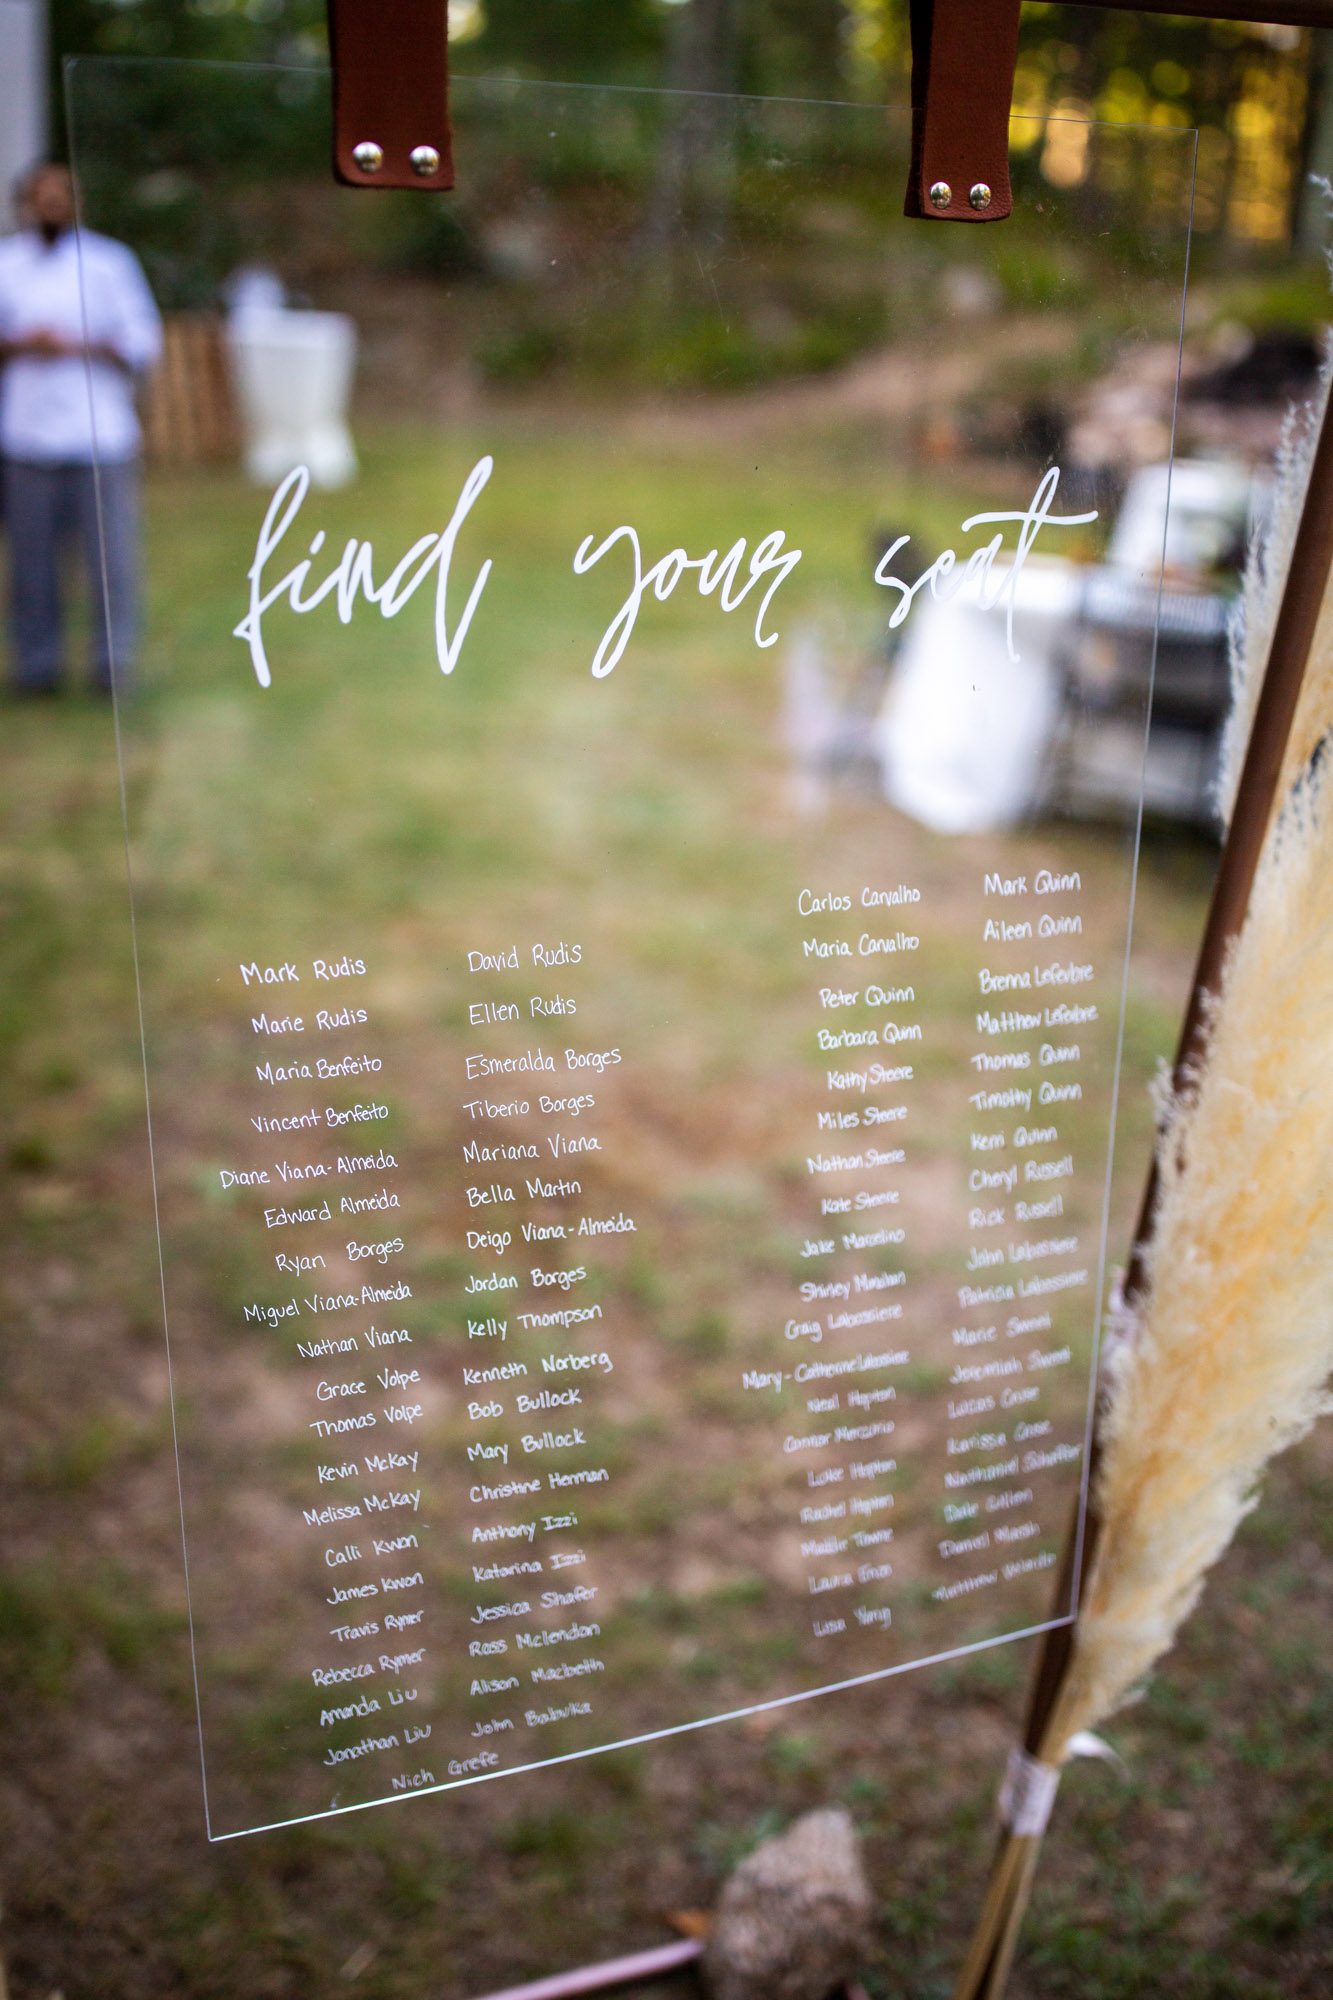 find your seat
Mark Rudis
Marie Rudis
Maria Benfeito
Vincent Benfeito
Diane Viana-Almeida
Edward Almeida
Ryan Borges
Miguel Viana-Almeida
Nathan Viana
Grace Volpe
Thomas Volpe
Kevin McKay
Melissa McKay
Calli Kwon
James Kwon
Travis Rymer
Rebecca Rymer
Amanda Liu
Jonathan Liu
David Rudis
Ellen Rudis
Esmeralda Borges
Tiberio Borges
Mariana Viana
Bella Martin
Deigo Viana-Almeida
Jordan Borges
Kelly Thompson
Kenneth Norberg
Bob Bullock
Mary Bullock
Christine Herman
Anthony Izzi
Katarina Izzi
Jessica Shafer
Ross Mclendon
Alison Macbeth
John Babivka
Nich Grefe
Carlos Carvalho
Maria Carvalho
Peter Quinn
Barbara Quinn
Kathy Steere
Miles Steere
Nathan Steere
Kate Steere
Jake Marcelino
Shirley
Craig Labossiere
Mary-Catherine Labossier
Neal Hopton
Connor Mercurio
Luke Hopton
Rachel Hopton
Maddie Towne
Laura
Lisa Yang
Mark Quinn
Aileen Quinn
Brenna Lefevbre
Matthew Lefevbre
Thomas Quinn
Timothy Quinn
Kerri Quinn
Cheryl Russell
Rick Russell
John Labossiere
Patricia Labossiere
Marie Sweet
Jeremiah Sweet
Lucas
Karissa
Nathaniel Schaffer
Dale Cullen
Daniel Marsh
Matthew